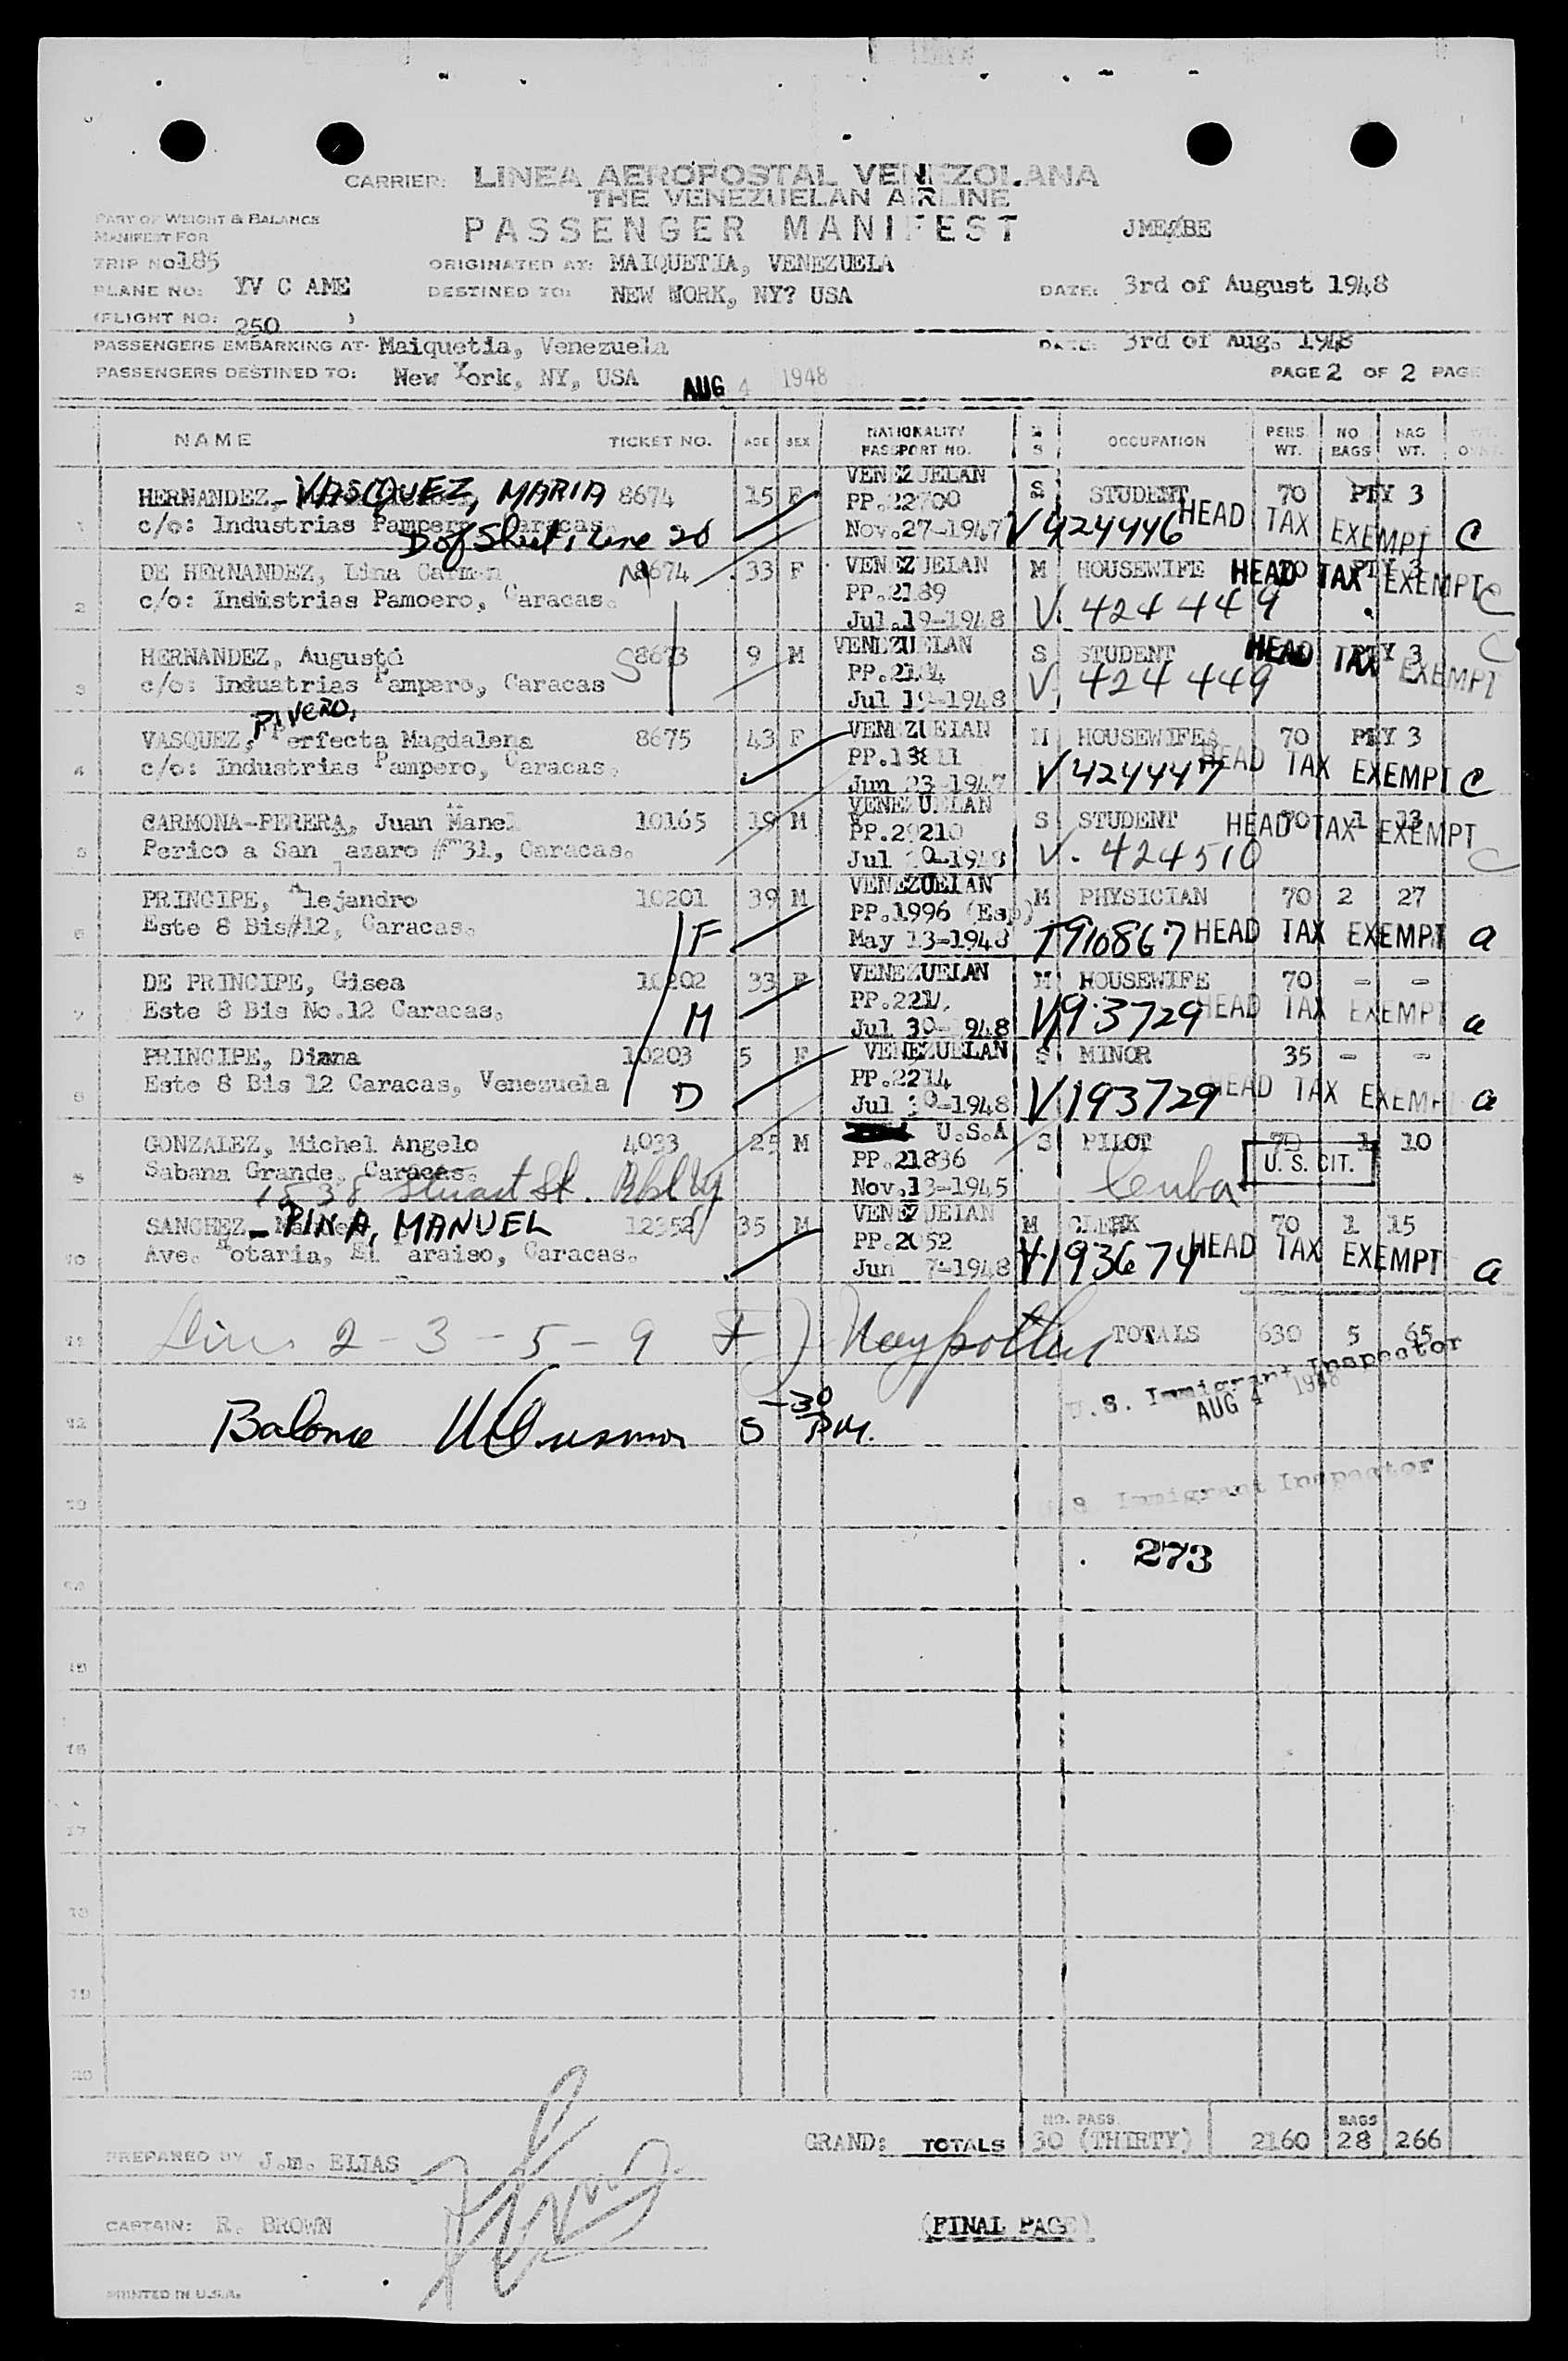 CARRIER: LINEA AEROPOSTAL VENEZOLANA
THE VENEZUELAN AIRLINE
PASSENGER MANIFEST
PART OF WEIGHT & BALANCE
MANIFEST FOR
TRIP NO: 185
PLANE NO: YV C AME
(FLIGHT NO: 250 )
ORIGINATED AT: MAIQUETIA, VENEZUELA
DESTINED TO: NEW WORK, NY? USA
DATE: 3rd of August 1948
PASSENGERS EMBARKING AT: Maiquetia, Venezuela DATE: 3rd of Aug. 1948
PASSENGERS DESTINED TO: New York, NY, USA AUG 4 1948 PAGE 2 OF 2 PAGE
NAME TICKET NO. AGE SEX NATIONALITY PASSPORT NO. M S OCCUPATION PERS. WT. NO BAGS BAG WT.
1 HERNANDEZ,- VASQUEZ, MARIA 8674 15 F VENEZUELAN S STUDENT 70 PTY 3
c/o: Industrias Pampero, Caracas. PP.22700 HEAD TAX EXEMPT C
D of Sheet 1 Line 20 Nov.27-1947 V424446
2 DE HERNANDEZ, Lina Carmen M 8674 33 F VENEZUELAN M HOUSEWIFE 70 PTY 3 HEAD TAX EXEMPT C
c/o: Indústrias Pamoero, Caracas. PP.2189
Jul.19-1948 V. 424449
3 HERNANDEZ, Augusto S 8673 9 M VENEZUELAN S STUDENT PTY 3 HEAD TAX EXEMPT C
c/o: Induatrias Pampero, Caracas
Jul 19-1948 V. 424449
4 VASQUEZ, PIVERO, Perfecta Magdalena 8675 43 F VENEZUELAN M HOUSEWIFE 70 PTY 3
c/o: Industrias Pampero, Caracas. PP.13811 HEAD TAX EXEMPT C
Jun 23-1947 V424447
5 CARMONA-PERERA, Juan Manel 10165 19 M VENEZUELAN S STUDENT 70 1 13 HEAD TAX EXEMPT
Perico a San Lazaro # 31, Caracas. PP.29210
Jul 20-1948 V. 424510 C
6 PRINCIPE, Alejandro 10201 39 M VENEZUELAN M PHYSICIAN 70 2 27
Este 8 Bis#12, Caracas. F PP.1996 (Esp)
May 13-1948 T910867 HEAD TAX EXEMPT a
7 DE PRINCIPE, Gisea 10202 33 F VENEZUELAN M HOUSEWIFE 70 - -
Este 8 Bis No.12 Caracas. M
Jul 30-1948 V193729 HEAD TAX EXEMPT a
8 PRINCIPE, Diana 10203 5 F VENEZUELAN S MINOR 35 - -
Este 8 Bis 12 Caracas, Venezuela D PP.2214
Jul 30-1948 V193729 HEAD TAX EXEMPT a
9 GONZALEZ, Michel Angelo 4033 25 M U.S.A S PILOT 70 1 10
Sabana Grande, Caracas. PP.21836 U. S. CIT.
1838 Stuart St. Bklyn Nov.13-1945 Cuba
10 SANCHEZ - PINA, MANUEL 12352 35 M VENEZUELAN M CLERK 70 1 15
Ave. Notaria, El Paraiso, Caracas. PP.2052 HEAD TAX EXEMPT
Jun 7-1948 V193674 a
11 Lines 2 - 3 - 5 - 9 TOTALS 630 5 65
U.S. Immigrant Inspector
AUG 4 1948
12 Balance 5-30 P.M.
13 U.S. Immigrant Inspector
14 273
15
16
17
18
19
20
GRAND: TOTALS NO. PASS. 30 (THIRTY) 2160 BAGS 28 266
PREPARED BY J.m. ELIAS
CAPTAIN: R. BROWN
(FINAL PAGE)
PRINTED IN U.S.A.